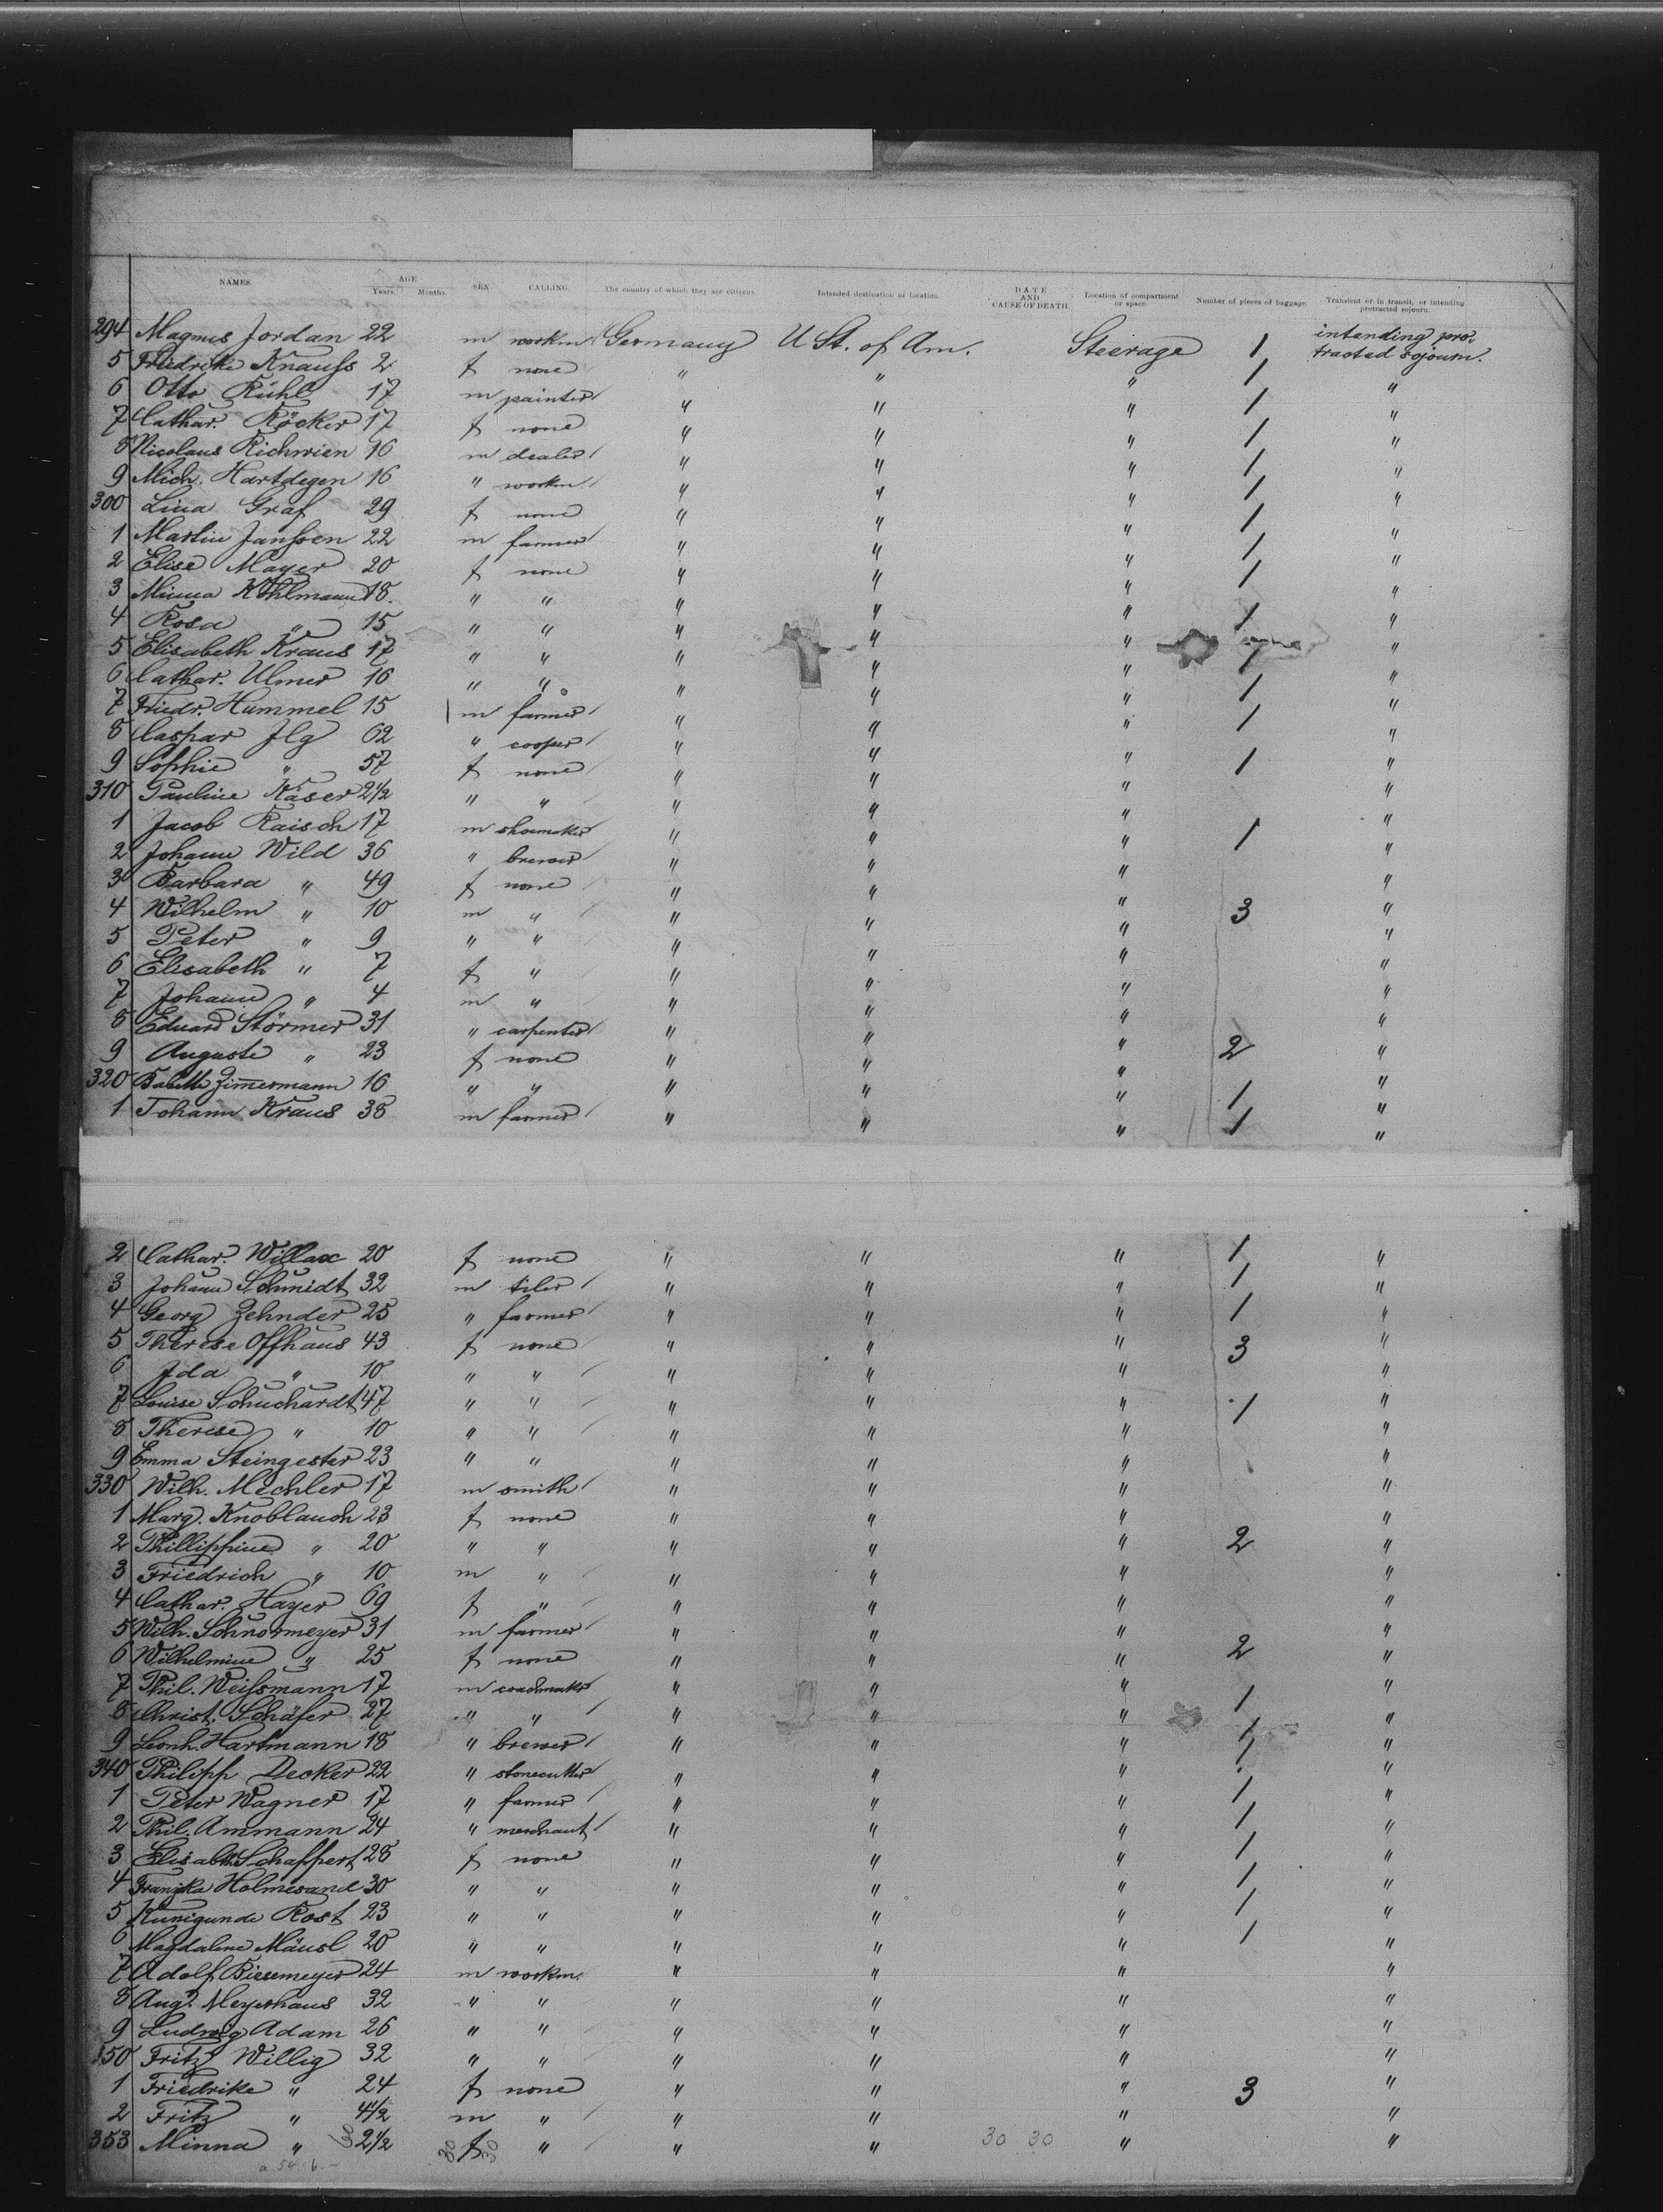 NAMES. AGE Years. Months. SEX CALLING. The country of which they are citizens. Intended destination or location. DATE AND CAUSE OF DEATH. Location of compartment or space. Number of pieces of baggage. Transient or in transit, or intending protracted sojourn.
294 Magnus Jordan 22 m workm Germany U St. of Am. Steerage 1 intending pro-tracted sojourn.
5 Friedrike Knauſs 2 f none " " " 1 "
6 Otto Rühl 17 m painter " " " 1 "
7 Cathar. Röcker 17 f none " " " 1 "
8 Nicolaus Richwien 16 m dealer " " " 1 "
9 Mich. Hartdegen 16 " workm " " " 1 "
300 Lina Graf 29 f none " " " 1 "
1 Martin Janſsen 22 m farmer " " " 1 "
2 Elise Mayer 20 f none " " " 1 "
3 Minna Kohlmann 18 " " " " " 1 "
4 Rosa " 15 " " " " " "
5 Elisabeth Kraus 17 " " " " " 1 "
6 Cathar. Ulmer 16 " " " " " 1 "
7 Friedr. Hummel 15 m farmer " " " 1 "
8 Caspar Jlg 62 " cooper " " " "
9 Sophie " 57 f none " " " 1 "
310 Pauline Käser 2½ " " " " " "
1 Jacob Raisch 17 m shoemaker " " " 1 "
2 Johann Wild 36 " brewer " " " "
3 Barbara " 49 f none " " " "
4 Wilhelm " 10 m " " " " 3 "
5 Peter " 9 " " " " " "
6 Elisabeth " 7 f " " " " "
7 Johann " 4 m " " " " "
8 Eduard Störmer 31 " carpenter " " " "
9 Auguste " 23 f none " " " 2 "
320 Babette Zimmermann 16 " " " " " 1 "
1 Johann Kraus 38 m farmer " " " 1 "
2 Cathar. Willax 20 f none " " " 1 "
3 Johann Schmidt 32 m tiler " " " 1 "
4 Georg Zehnder 25 " farmer " " " 1 "
5 Therese Offhaus 43 f none " " " 3 "
6 Jda " 10 " " " " " "
7 Louise Schuchardt 47 " " " " " 1 "
8 Therese " 10 " " " " " "
9 Emma Steingester 23 " " " " " "
330 Wilh. Mechler 17 m smith " " " "
1 Marg. Knoblauch 23 f none " " " "
2 Phillippine " 20 " " " " " 2 "
3 Friedrich " 10 m " " " " "
4 Cathar. Hayer 69 f " " " " "
5 Wilh. Schnormeyer 31 m farmer " " " "
6 Wilhelmine " 25 f none " " " 2 "
7 Phil. Weiſsmann 17 m coachmaker " " " 1 "
8 Christ. Schäfer 27 " " " " " 1 "
9 Leonh. Hartmann 18 " brewer " " " 1 "
340 Philipp Decker 22 " stonecutter " " " "
1 Peter Wagner 17 " farmer " " " 1 "
2 Phil. Ammann 24 " merchant " " " 1 "
3 Elisabeth Schappert 28 f none " " " 1 "
4 Franziska Holmesand 30 " " " " " 1 "
5 Kunigunde Rost 23 " " " " " 1 "
6 Magdalene Mäusl 20 " " " " " 1 "
7 Adolf Biesemeyer 24 m workm. " " " "
8 Aug. Meyerhaus 32 " " " " " "
9 Ludwig Adam 26 " " " " " "
350 Fritz Willig 32 " " " " " "
1 Friedrike " 24 f none " " " 3 "
2 Fritz " 4½ m " " " " "
353 Minna " 2½ f " " " 30 30 " "